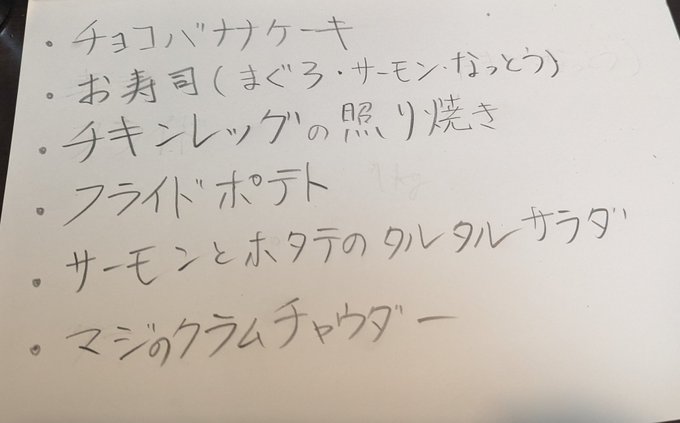 ・チョコバナナケーキ
・お寿司(まぐろ・サーモン・なっとう)
・チキンレッグの照り焼き
・フライドポテト
・サーモンとホタテのタルタルサラダ
・マジのクラムチャウダー